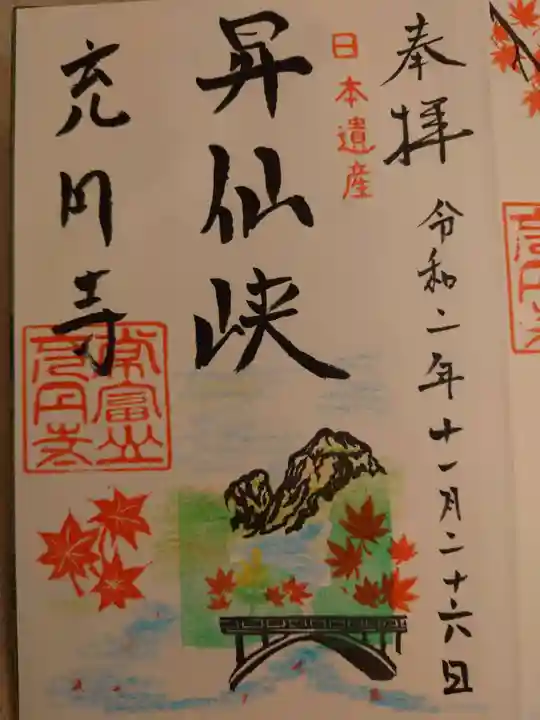 奉拝
令和二年十一月二十六日
日本遺産
昇仙峡
充円寺
常富山